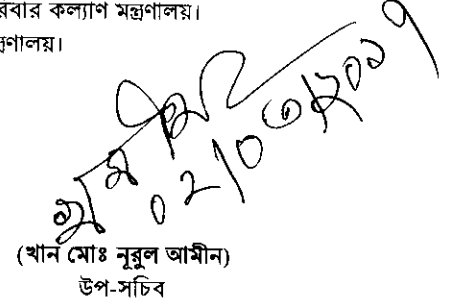 রিবার কল্যাণ মন্ত্রণালয়।
ন্ত্রণালয়।
০২/০৩/২০১৭
(খান মোঃ নূরুল আমীন)
উপ-সচিব